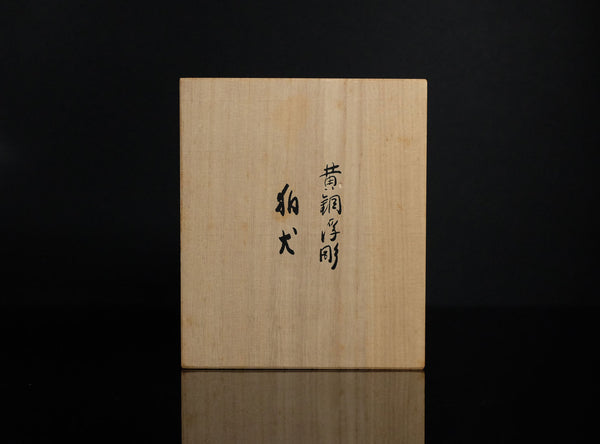 黄銅浮彫
狛犬